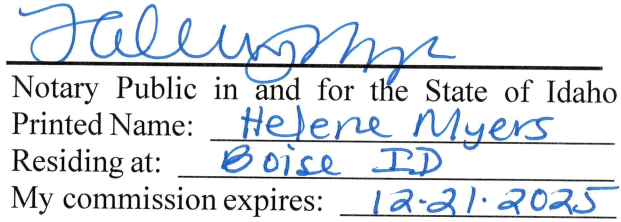 Notary Public in and for the State of Idaho
Printed Name: Helene Myers
Residing at: Boise ID
My commission expires: 12-21-2025